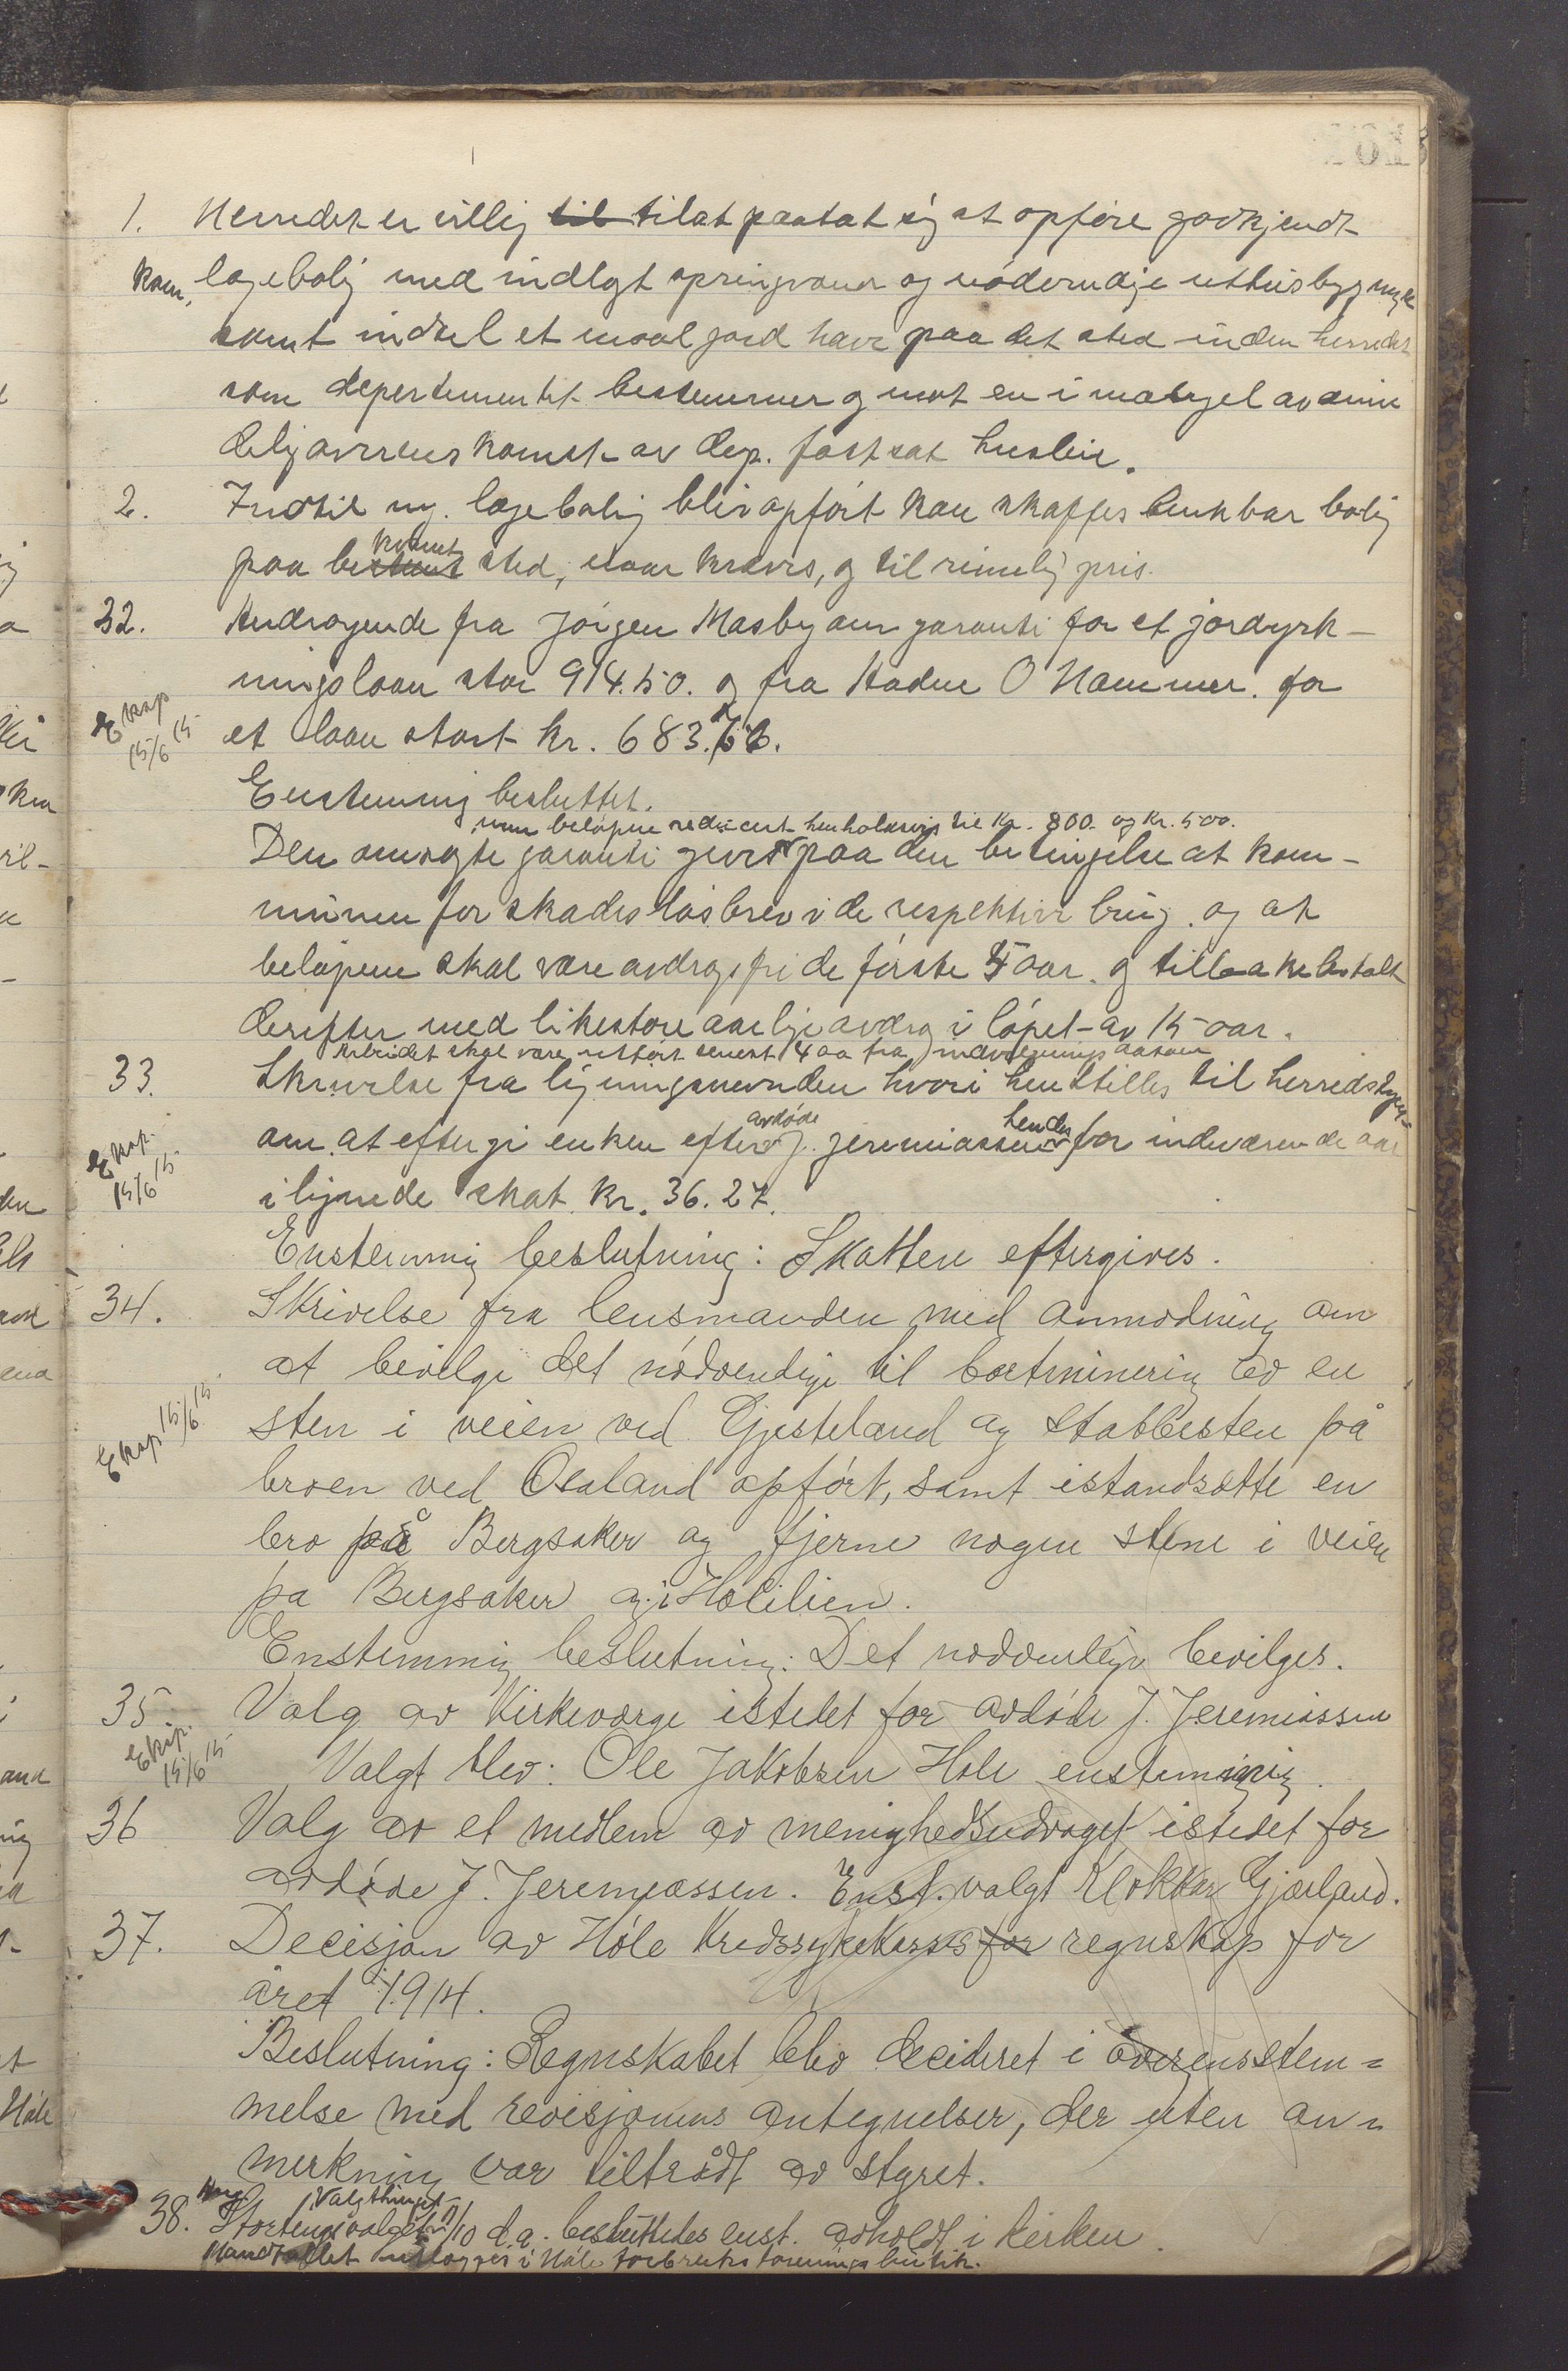 1. Herredet er villig til til at paatat sig at opføre godkjendt
kom. lægebolig med indlagt springvand og nødvendige uthusbygninger
samt indtil et maal jord have paa det sted inden herredet
som departementet bestemmer og mot en i mangel av minde-
delig overenskomst av dep. fastsat husleie.
2. Indtil ny lægebolig blir opført kan skaffes brukbar bolig
kvemt
paa bestemt sted, naar kræves, og til rimelig pris.
32. Andragende fra Jørgen Masby om garanti for et jordyrk-
ningslaan stor 914.50. og fra Hadne O Hammer for
E kop 15/6 15
et laan stort kr. 683.
Enstemmig besluttet.
men beløpene redusert henholdsvis til kr. 800. og kr. 500.
Den omsøgte garanti gives paa den betingelse at kom-
munen før skadesløsbrev i de respektive brug. og at
beløpene skal være avdragsfri de første 5 aar. og tilbakebetalt
derefter med likestore aarlige avdrag i løpet av 15 aar.
Arbeidet skal være utført senest 4 aa fra indvilgnings datoen
33. Skrivelse fra ligningsnevnden hvori henstilles til herredstyret
avdøde hendes
om at eftergi enken efter J. Jeremiassen for indeværende aar
E kop. 15/6 15
ilignede skat kr. 36.27.
Enstemmig beslutning: Skatten eftergives.
34. Skrivelse fra lensmanden med anmodning om
at bevilge det nødvendige til bortminering av en
E kop 15/6 15
sten i veien ved Gjesteland og stabbesten på
broen ved Osaland opført, samt istandsætte en
bro på Bergsaker og fjerne nogen stene i veien
på Bergsaker og i Holelien.
Enstemmig beslutning: Det nødvendige bevilges.
35 Valg av Kirkeværge istedet for avdøde J. Jeremiassen
E kop. 15/6 15
Valgt blev: Ole Jakobsen Hole enstemmig.
36 Valg av et medlem av menighedsudvaget istedet for
avdøde J. Jeremiassen. Enst. valgt Klokkar Gjærland.
37. Decisjon av Høle Kredssykekasses for regnskap for
året 1914.
Beslutning: Regnskabet blev decideret i overensstem=
melse med revisjonens antegnelser, der uten an=
merkning var tiltrådt av styret.
Valgthinget
38. Stortingsvalget 11/10 d.a. besluttedes enst. avholdt i kirken.
Mandtallet utlægges i Høle forbruksforenings butik.